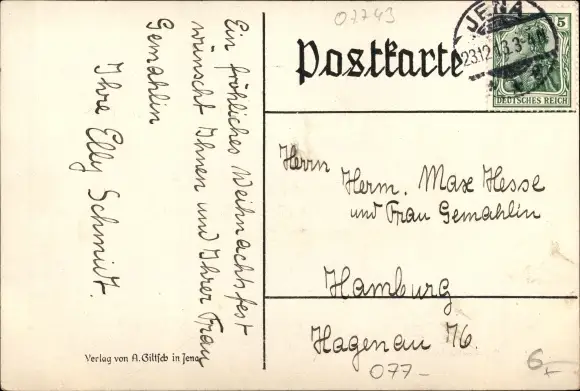 07743
Postkarte
JENA
23.12.13.3-4N
5
DEUTSCHES REICH
Ein fröhliches Weihnachtsfest
wünscht Ihnen und Ihrer Frau
Gemahlin
Ihre Elly Schmidt.
Herrn
Herm. Max Hesse
und Frau Gemahlin
Hamburg
Hagenau 76.
077-
6,-
Verlag von A. Giltsch in Jena